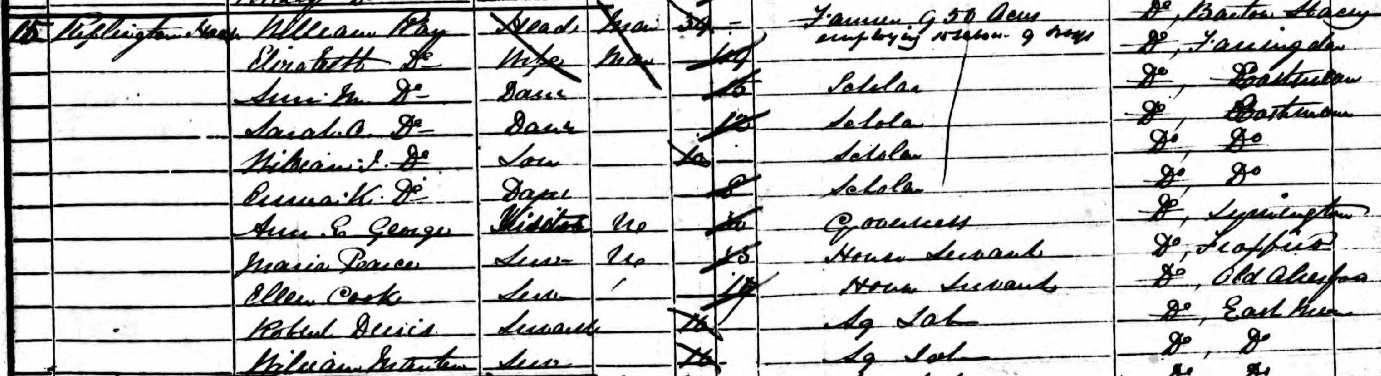 15 William Ray Head Mar 54 Farmer of 50 Acres Do, Barton Stacey
employing of Boys
Elizabeth Do Wife Mar 49 Do, Farringdon
Ann M. Do Daur 16 Scholar Do, Eastmeon
Sarah A. Do Daur 12 Scholar Do, Eastmeon
William J. Do Son 10 Scholar Do, Do
Emma K. Do Daur 8 Scholar Do, Do
Ann E George Visitor Un Governess Do, Lymington
Maria Pearce Serv Un 15 House Servant Do, Froxfield
Ellen Cook Serv 17 House Servant Do, Old Alresford
Robert Servant 16 Ag Lab Do, East Meon
William Serv 16 Ag Lab Do, Do